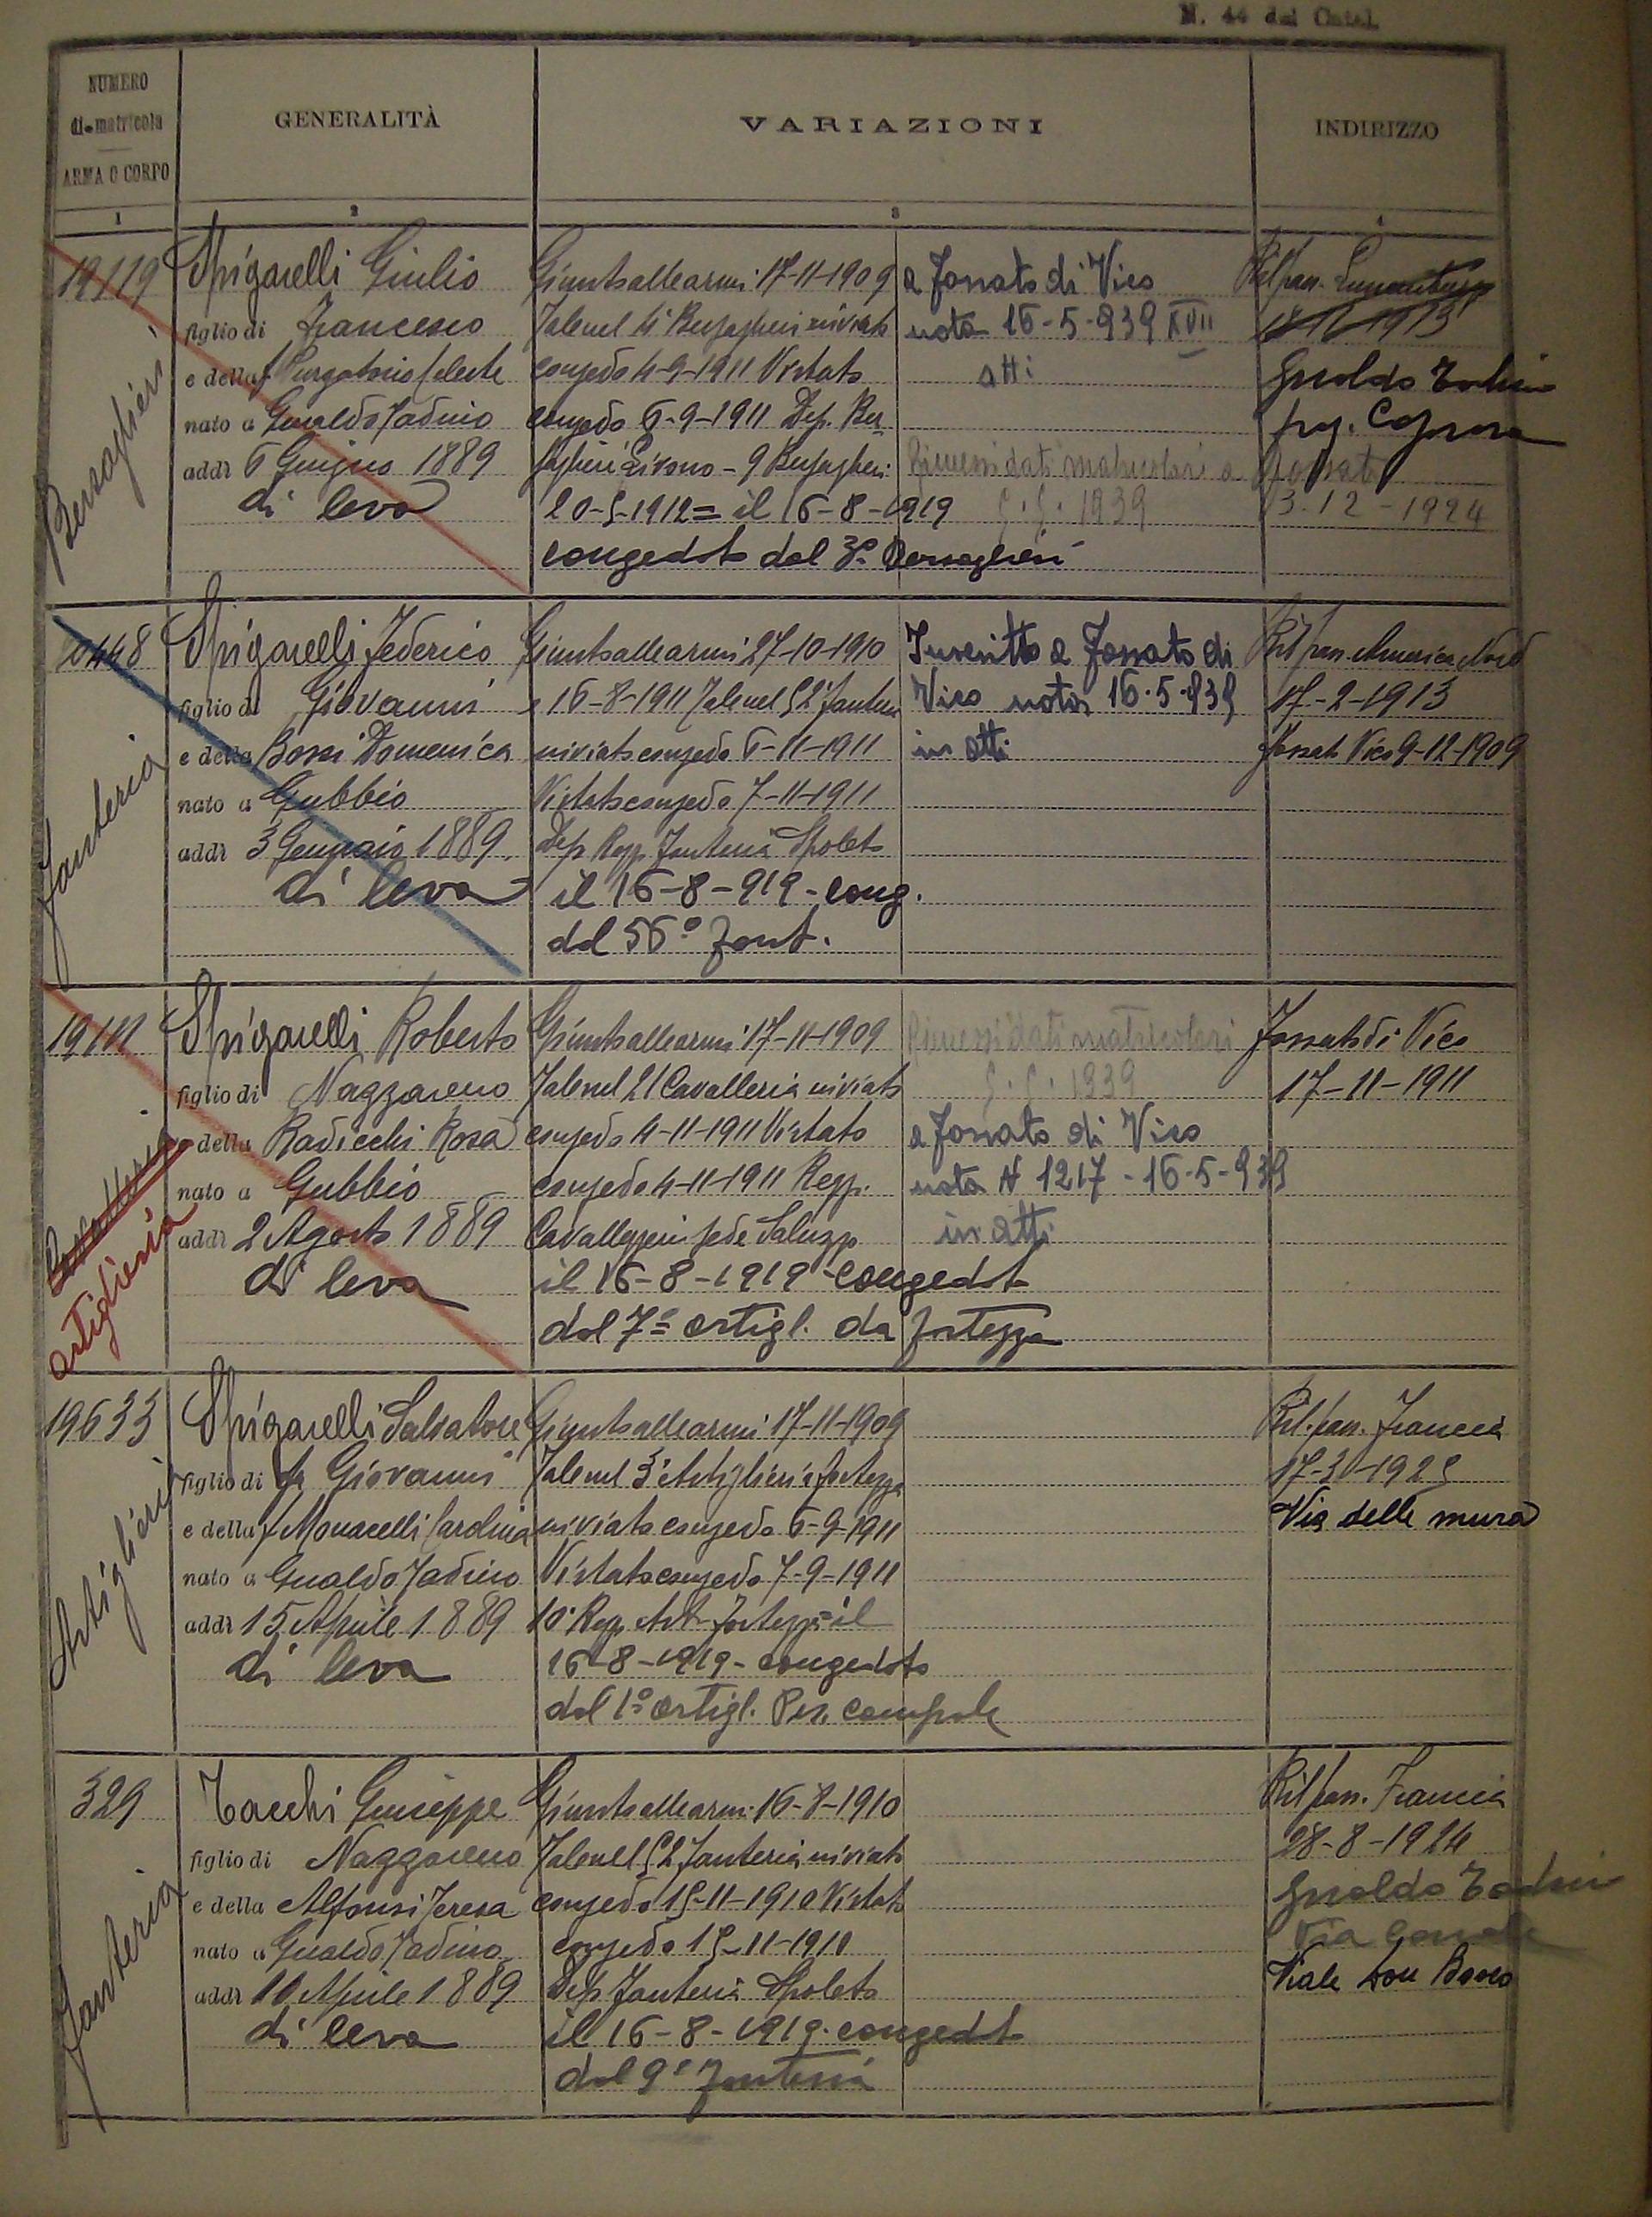 N. 44 del Catal.
NUMERO
di matricola
ARMA O CORPO
GENERALITÀ
VARIAZIONI
INDIRIZZO
1
2
3
4
19119
Bersaglieri
Spigarelli Giulio
figlio di Francesco
e della f Purgatorio Celeste
nato a Gualdo Tadino
addì 6 Giugno 1889
di leva
Giunto alle armi 17-11-1909
Tale nel 4° Bersaglieri inviato
congedo 4-9-1911 Vistato
congedo 6-9-1911 Dep. Ber
saglieri Livorno - 9 Bersaglieri
20-5-1912 = il 16-8-1919
congedato dal 3° Bersaglieri
a Fossato di Vico
nota 16-5-939 XVII
atti
Rimessi dati matricolari a Fossato
5.5.1939
Ril pass.
1913
Gualdo Tadino
fraz. Caprara
3.12-1924
448
Fanteria
Spigarelli Federico
figlio di Giovanni
e della Bossi Domenica
nato a Gubbio
addì 3 Gennaio 1889
di leva
Giunto alle armi 27-10-1910
16-8-1911 Tale nel 52° Fanteria
inviato congedo 6-11-1911
Vistato congedo 7-11-1911
Dep. Regg. Fanteria Spoleto
il 16-8-919 - cong.
dal 55° Fant.
Inscritto a Fossato di
Vico nota 16.5.939
in atti
Ril pass. America Nord
17-2-1913
Fossato Vico 9-12-1909
Cavalleria
artiglieria
Spigarelli Roberto
figlio di Nazzareno
della Radicchi Rosa
nato a Gubbio
addì 2 Agosto 1889
di leva
Giunto alle armi 17-11-1909
Tale nel 21 Cavalleria inviato
congedo 4-11-1911 Vistato
congedo 4-11-1911 Regg.
Cavalleggeri sede Saluzzo
il 16-8-1919 - congedat
dal 7° artigl. da fortezza
Rimessi dati matricolari
5.5.1939
a Fossato di Vico
nota N 1217 - 16-5-939
in atti
Fossato di Vico
17-11-1911
19633
Artiglieria
Spigarelli Salvatore
figlio di fu Giovanni
e della f Monacelli Carolina
nato a Gualdo Tadino
addì 15 Aprile 1889
di leva
Giunto alle armi 17-11-1909
Tale nel 3° Artiglieria fortezza
inviato congedo 6-9-1911
Vistato congedo 7-9-1911
10° Regg. Art. Fortezza = il
16-8-1919 - congedato
dal 1° artigl. Pes. campale
Ril. pass. Francia
17-3-1925
Via delle mura
329
Fanteria
Tacchi Giuseppe
figlio di Nazzareno
e della Alfonsi Teresa
nato a Gualdo Tadino
addì 10 Aprile 1889
di leva
Giunto alle armi 16-8-1910
Tale nel 52 Fanteria inviato
congedo 15-11-1910 Vistato
congedo 15-11-1910
Dep. Fanteria Spoleto
il 16-8-1919 - congedat
dal 9° Fanteria
Ril pass. Francia
28-8-1924
Gualdo Tadino
Via
Viale Don Bosco